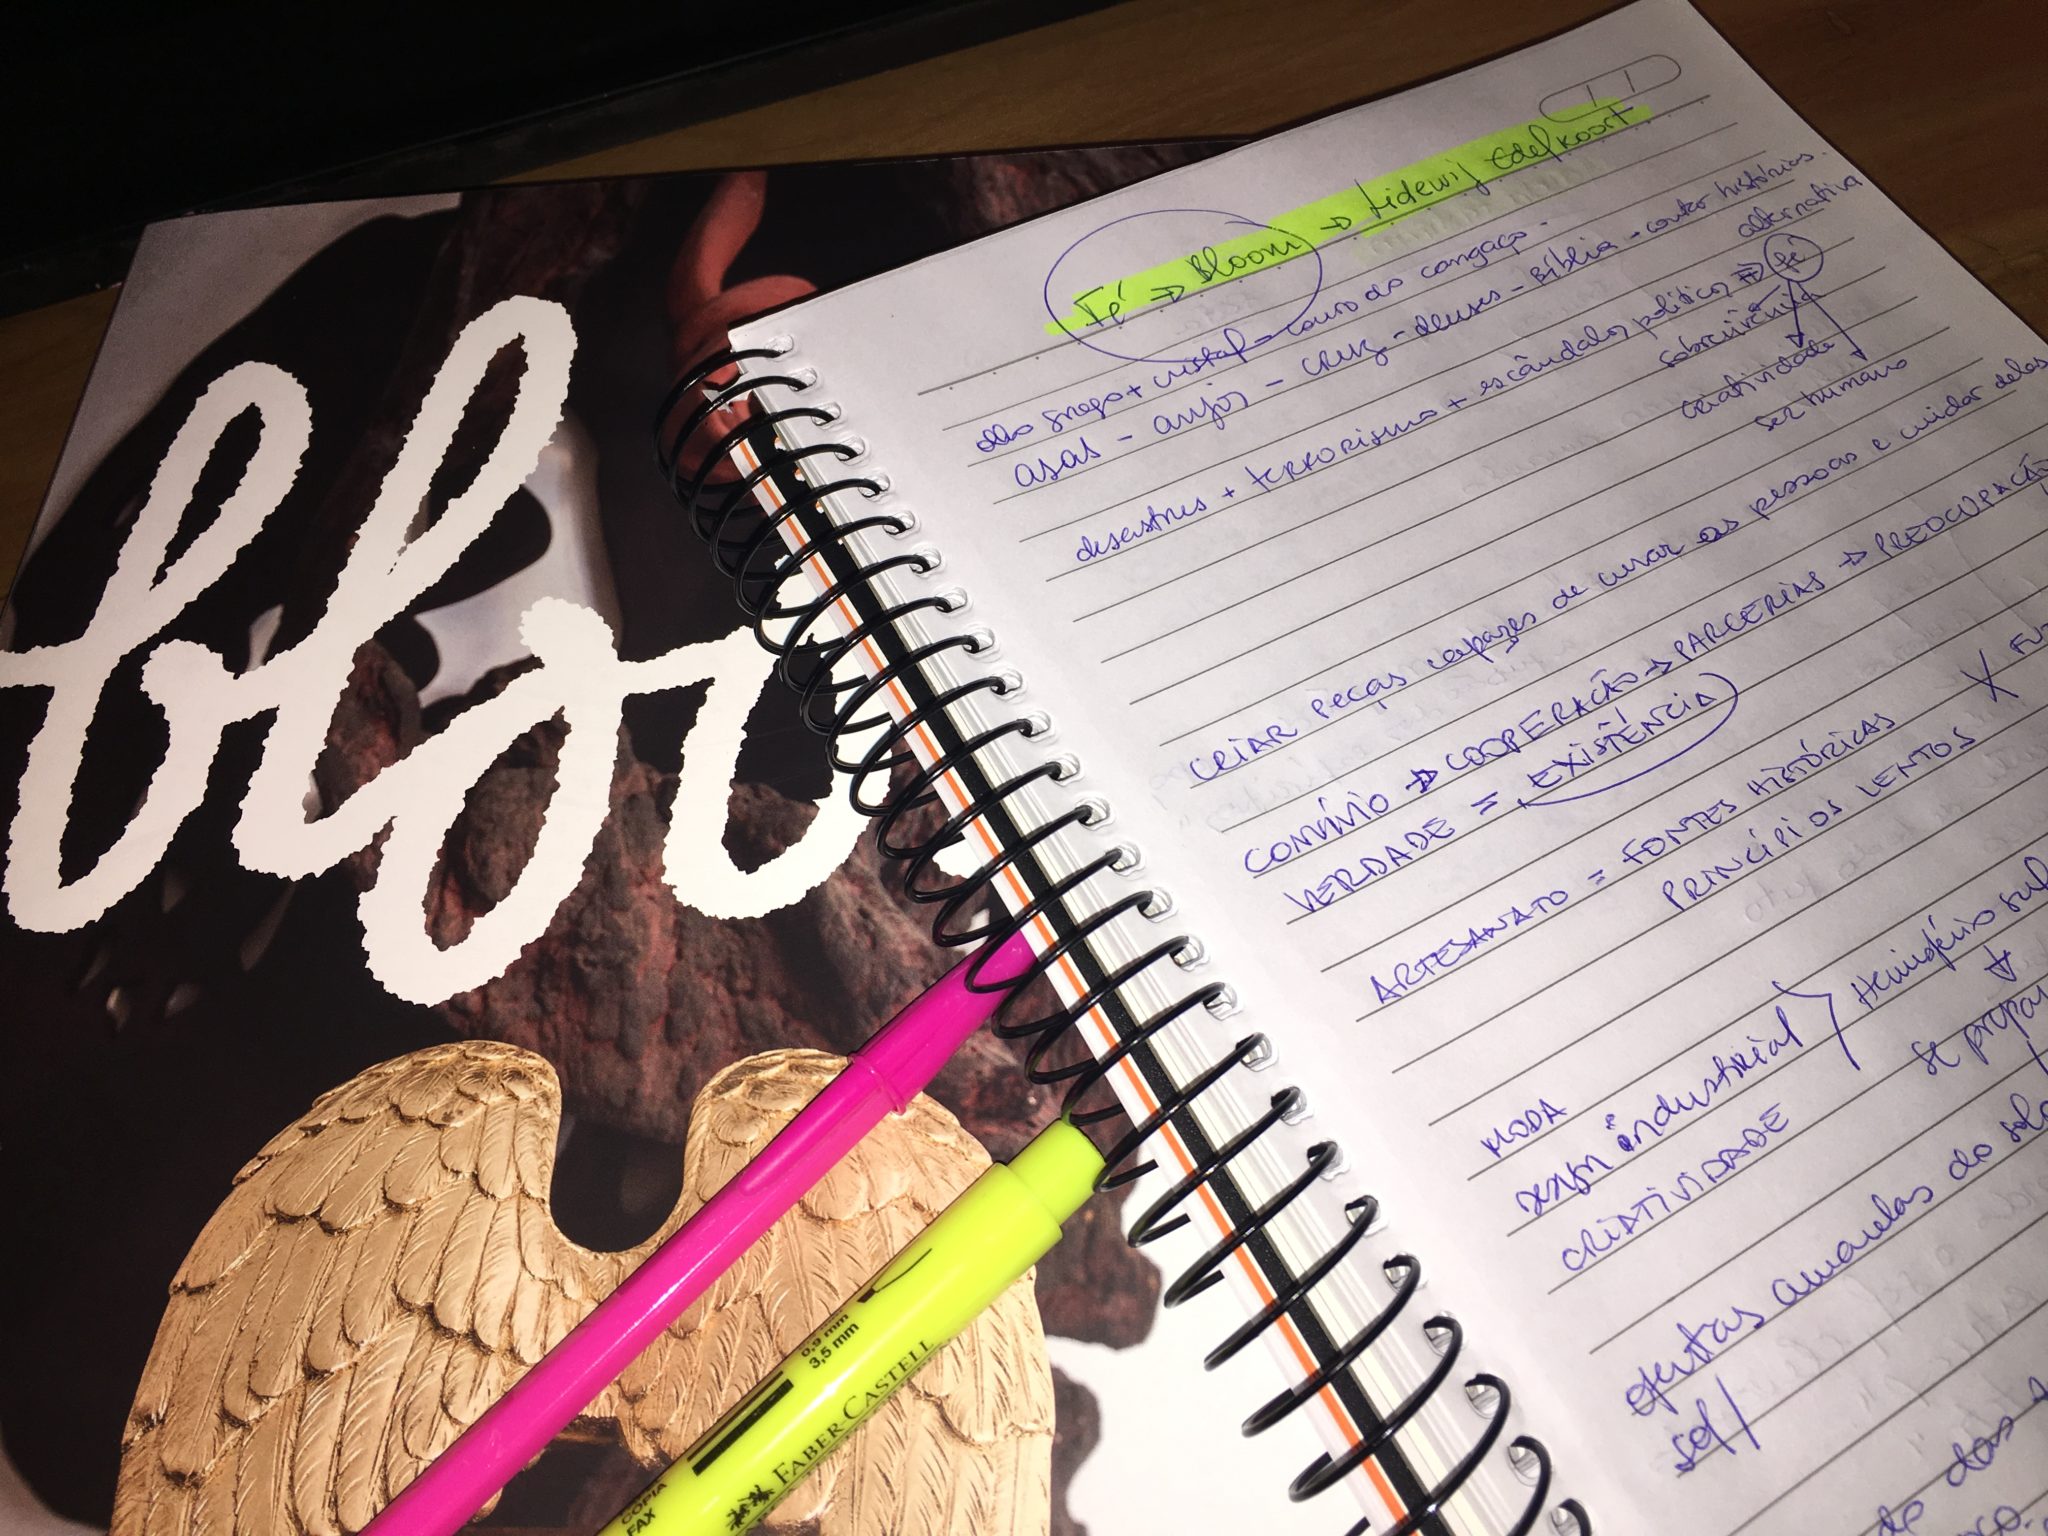 blo
Fé → Bloom → Lidewij Edelkoort
olho grego + cristal - couro do cangaço.
asas - anjos - cruz - deuses - Bíblia - contar histórias.
desastres + terrorismo + escândalos políticos → fé
alternativa
sobrevivência
criatividade
ser humano
CRIAR PEÇAS capazes de curar as pessoas e cuidar delas
CONVÍVIO → COOPERAÇÃO → PARCERIAS → PREOCUPAÇÃO
VERDADE = EXISTÊNCIA
ARTESANATO = FONTES HISTÓRICAS
PRINCÍPIOS LENTOS X
MODA
design industrial
CRIATIVIDADE
Hemisfério sul
se
do
sol
do das
0,9 mm
3,5 mm
FABER-CASTELL
COPIA
FAX